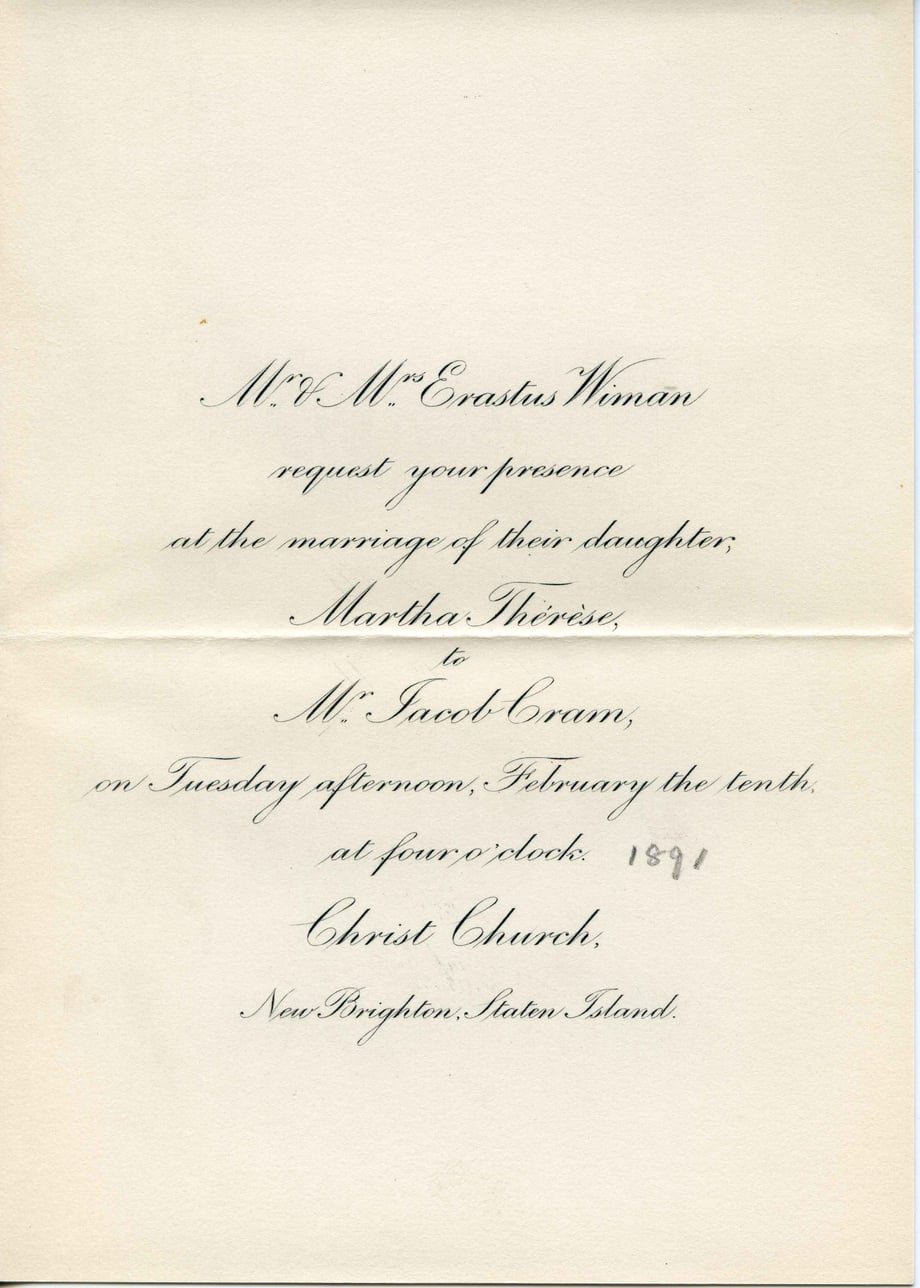 Mr. & Mrs. Erastus Wiman
request your presence
at the marriage of their daughter,
Martha Thérèse,
to
Mr. Jacob Cram,
on Tuesday afternoon, February the tenth,
at four o'clock. 1891
Christ Church,
New Brighton, Staten Island.